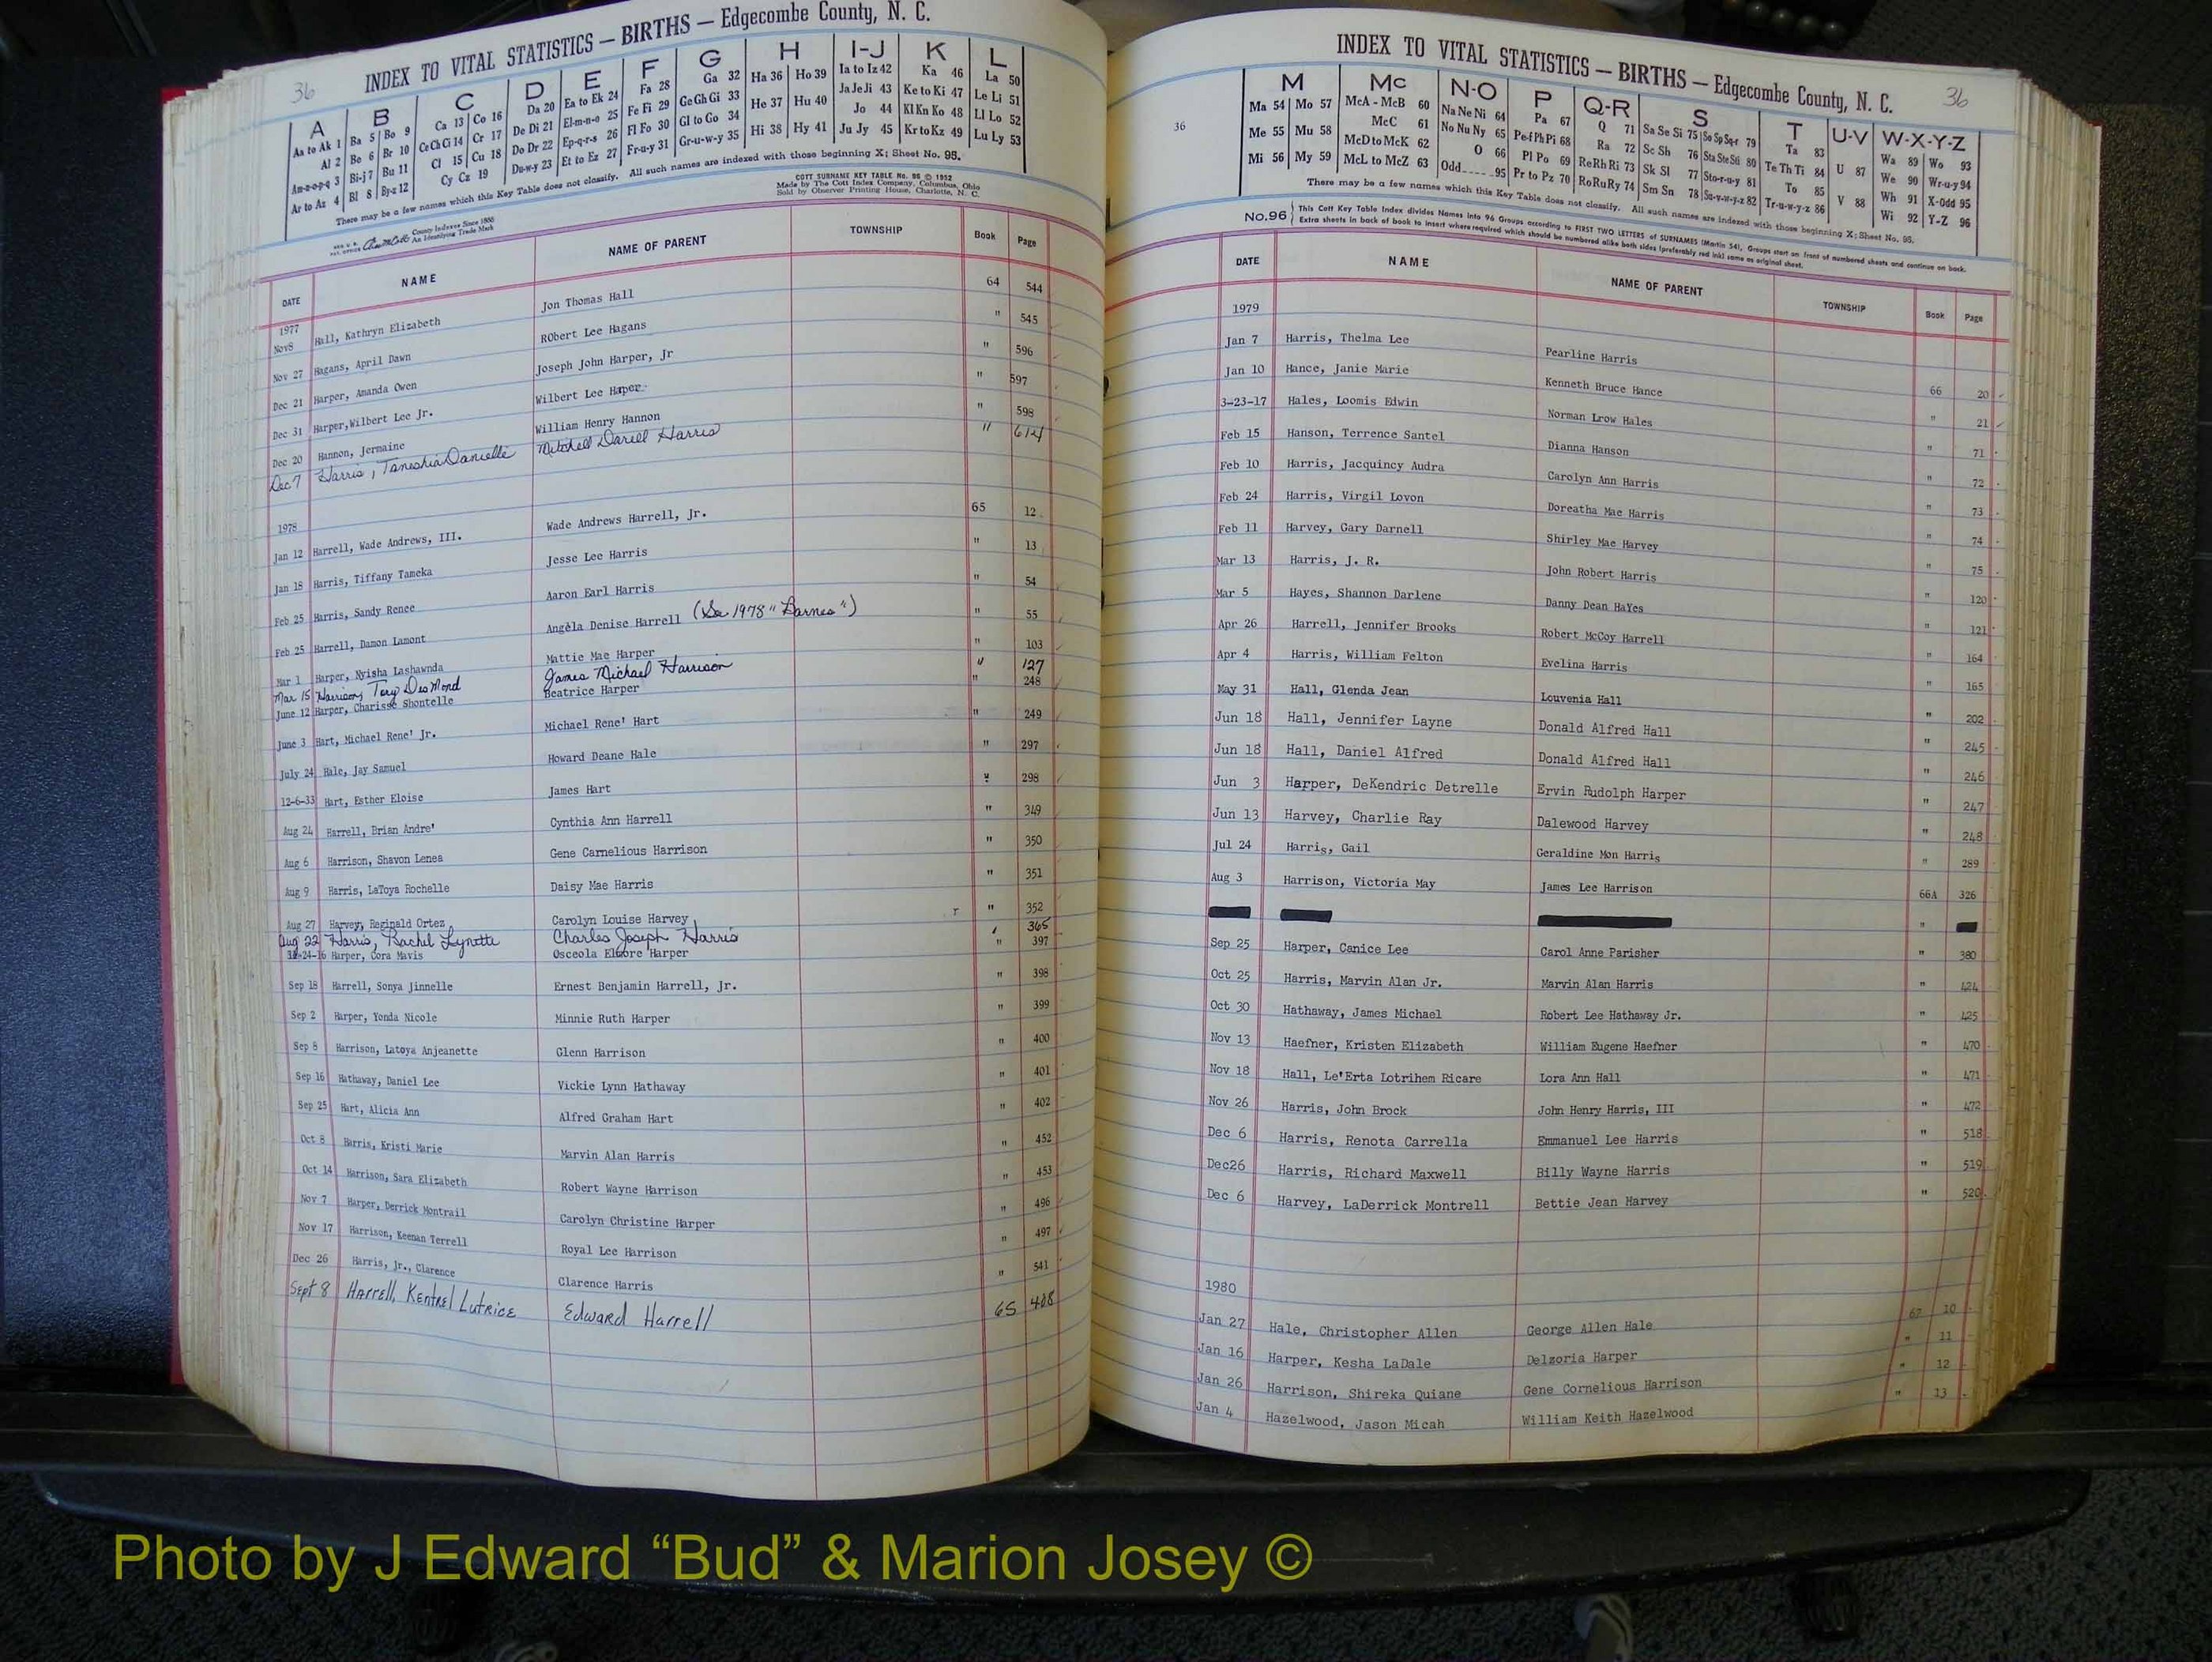 36
INDEX TO VITAL STATISTICS — BIRTHS — Edgecombe County, N. C.
A B C D E F G H I-J K L
Aa to Ak 1 Ba 5 Bo 9 Ca 13 Co 16 Da 20 Ea to Ek 24 Fa 28 Ga 32 Ha 36 Ho 39 Ia to Iz 42 Ka 46 La 50
Al 2 Be 6 Br 10 Ce Ch Ci 14 Cr 17 De Di 21 El-m-n-o 25 Fe Fi 29 Ge Gh Gi 33 He 37 Hu 40 Ja Je Ji 43 Ke to Ki 47 Le Li 51
An-o-p-q 3 Bi-j 7 Bu 11 Cl 15 Cu 18 Do Dr 22 Ep-q-r-s 26 Fl Fo 30 Gl to Go 34 Hi 38 Hy 41 Jo 44 Kl Kn Ko 48 Ll Lo 52
Ar to Az 4 Bl 8 By-z 12 Cy Cz 19 Du-w-y 23 Et to Ez 27 Fr-u-y 31 Gr-u-w-y 35 Ju Jy 45 Kr to Kz 49 Lu Ly 53
There may be a few names which this Key Table does not classify. All such names are indexed with those beginning X; Sheet No. 95.
COTT SURNAME KEY TABLE No. 96 © 1952
Made by The Cott Index Company, Columbus, Ohio
Sold by Observer Printing House, Charlotte, N. C.
County Indexes Since 1888
An Identifying Trade Mark
DATE NAME NAME OF PARENT TOWNSHIP Book Page
1977
Nov8 Hall, Kathryn Elizabeth Jon Thomas Hall 64 544
Nov 27 Hagans, April Dawn RObert Lee Hagans " 545
Dec 21 Harper, Amanda Owen Joseph John Harper, Jr " 596
Dec 31 Harper,Wilbert Lee Jr. Wilbert Lee Haper " 597
Dec 20 Hannon, Jermaine William Henry Hannon " 598
Dec 7 Harris, Taneshia Danielle Mitchell Darell Harris " 614
1978
Jan 12 Harrell, Wade Andrews, III. Wade Andrews Harrell, Jr. 65 12
Jan 18 Harris, Tiffany Tameka Jesse Lee Harris " 13
Feb 25 Harris, Sandy Renee Aaron Earl Harris " 54
Feb 25 Harrell, Damon Lamont Angela Denise Harrell (See 1978 "Barnes") " 55
Mar 1 Harper, Nyisha Lashawnda Mattie Mae Harper " 103
Mar 15 Harrison, Tory DesMond James Michael Harrison " 127
June 12 Harper, Charisse Shontelle Beatrice Harper " 248
June 3 Hart, Michael Rene' Jr. Michael Rene' Hart " 249
July 24 Hale, Jay Samuel Howard Deane Hale " 297
12-6-33 Hart, Esther Eloise James Hart " 298
Aug 24 Harrell, Brian Andre' Cynthia Ann Harrell " 349
Aug 6 Harrison, Shavon Lenea Gene Carnelious Harrison " 350
Aug 9 Harris, LaToya Rochelle Daisy Mae Harris " 351
Aug 27 Harvey, Reginald Ortez Carolyn Louise Harvey r " 352
Aug 22 Harris, Rachel Lynette Charles Joseph Harris " 365
-24-16 Harper, Cora Mavis Osceola Elmore Harper " 397
Sep 18 Harrell, Sonya Jinnelle Ernest Benjamin Harrell, Jr. " 398
Sep 2 Harper, Yonda Nicole Minnie Ruth Harper " 399
Sep 8 Harrison, Latoya Anjeanette Glenn Harrison " 400
Sep 16 Hathaway, Daniel Lee Vickie Lynn Hathaway " 401
Sep 25 Hart, Alicia Ann Alfred Graham Hart " 402
Oct 8 Harris, Kristi Marie Marvin Alan Harris " 452
Oct 14 Harrison, Sara Elizabeth Robert Wayne Harrison " 453
Nov 7 Harper, Derrick Montrail Carolyn Christine Harper " 496
Nov 17 Harrison, Keenan Terrell Royal Lee Harrison " 497
Dec 26 Harris, Jr., Clarence Clarence Harris " 541
Sept 8 Harrell, Kentrel Lutrice Edward Harrell 65 408
INDEX TO VITAL STATISTICS — BIRTHS — Edgecombe County, N. C.
36
36
M Mc N-O P Q-R S T U-V W-X-Y-Z
Ma 54 Mo 57 McA - McB 60 Na Ne Ni 64 Pa 67 Q 71 Sa Se Si 75 So Sp Sq-r 79 Ta 83 U 87 Wa 89 Wo 93
Me 55 Mu 58 McC 61 No Nu Ny 65 Pe-f Ph Pi 68 Ra 72 Sc Sh 76 Sta Ste Sti 80 Te Th Ti 84 V 88 We 90 Wr-u-y 94
Mi 56 My 59 McD to McK 62 O 66 Pl Po 69 Re Rh Ri 73 Sk Sl 77 Sto-r-u-y 81 To 85 Wh 91 X-Odd 95
McL to McZ 63 Odd 95 Pr to Pz 70 Ro Ru Ry 74 Sm Sn 78 Su-v-w-y-z 82 Tr-u-w-y-z 86 Wi 92 Y-Z 96
There may be a few names which this Key Table does not classify. All such names are indexed with those beginning X; Sheet No. 95.
No.96 This Cott Key Table Index divides Names into 96 Groups according to FIRST TWO LETTERS of SURNAMES (Martin 54), Groups start on front of numbered sheets and continue on back.
Extra sheets in back of book to insert where required which should be numbered alike both sides (preferably red ink) same as original sheet.
DATE NAME NAME OF PARENT TOWNSHIP Book Page
1979
Jan 7 Harris, Thelma Lee Pearline Harris 66 20
Jan 10 Hance, Janie Marie Kenneth Bruce Hance " 21
3-23-17 Hales, Loomis Edwin Norman Lrow Hales " 71
Feb 15 Hanson, Terrence Santel Dianna Hanson " 72
Feb 10 Harris, Jacquincy Audra Carolyn Ann Harris " 73
Feb 24 Harris, Virgil Lovon Doreatha Mae Harris " 74
Feb 11 Harvey, Gary Darnell Shirley Mae Harvey " 75
Mar 13 Harris, J. R. John Robert Harris " 120
Mar 5 Hayes, Shannon Darlene Danny Dean HaYes " 121
Apr 26 Harrell, Jennifer Brooks Robert McCoy Harrell " 164
Apr 4 Harris, William Felton Evelina Harris " 165
May 31 Hall, Glenda Jean Louvenia Hall " 202
Jun 18 Hall, Jennifer Layne Donald Alfred Hall " 245
Jun 18 Hall, Daniel Alfred Donald Alfred Hall " 246
Jun 3 Harper, DeKendric Detrelle Ervin Rudolph Harper " 247
Jun 13 Harvey, Charlie Ray Dalewood Harvey " 248
Jul 24 Harris, Gail Geraldine Mon Harris " 289
Aug 3 Harrison, Victoria May James Lee Harrison 66A 326
"
Sep 25 Harper, Canice Lee Carol Anne Parisher " 380
Oct 25 Harris, Marvin Alan Jr. Marvin Alan Harris " 424
Oct 30 Hathaway, James Michael Robert Lee Hathaway Jr. " 425
Nov 13 Haefner, Kristen Elizabeth William Eugene Haefner " 470
Nov 18 Hall, Le'Erta Lotrihem Ricare Lora Ann Hall " 471
Nov 26 Harris, John Brock John Henry Harris, III " 472
Dec 6 Harris, Renota Carrella Emmanuel Lee Harris " 518
Dec26 Harris, Richard Maxwell Billy Wayne Harris " 519
Dec 6 Harvey, LaDerrick Montrell Bettie Jean Harvey " 520
1980
Jan 27 Hale, Christopher Allen George Allen Hale 67 10
Jan 16 Harper, Kesha LaDale Delzoria Harper " 11
Jan 26 Harrison, Shireka Quiane Gene Cornelious Harrison " 12
Jan 4 Hazelwood, Jason Micah William Keith Hazelwood " 13
Photo by J Edward “Bud” & Marion Josey ©